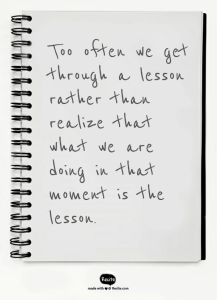 Too often we get
through a lesson
rather than
realize that
what we are
doing in that
moment is the
lesson.
Recite
made with ♥ @ Recite.com